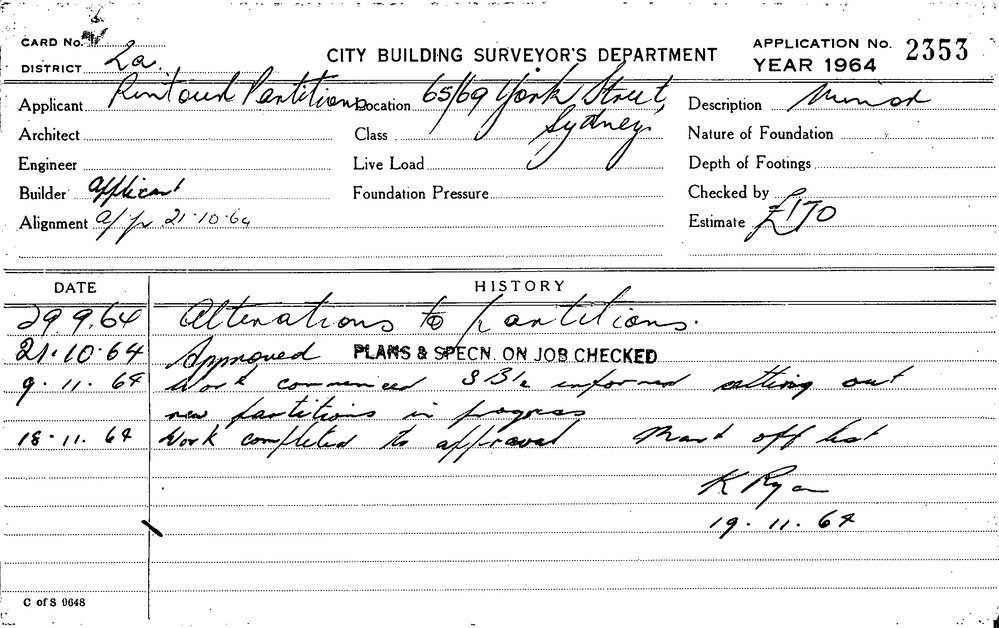 CARD No.
DISTRICT 2a.
CITY BUILDING SURVEYOR'S DEPARTMENT
APPLICATION No. 2353
YEAR 1964
Applicant Rintoul Partitions
Location 65/69 York Street, Sydney.
Description Minor
Architect
Class
Nature of Foundation
Engineer
Live Load
Depth of Footings
Builder applicant
Foundation Pressure
Checked by
Alignment 21.10.64
Estimate £170
DATE HISTORY
29.9.64 Alterations to partitions.
21.10.64 Approved PLANS & SPECN. ON JOB CHECKED
9.11.64 Work commenced informed setting out
new partitions in progress
18.11.64 Work completed to approval Mark off list
K Ryan
19.11.64
C of S 9648